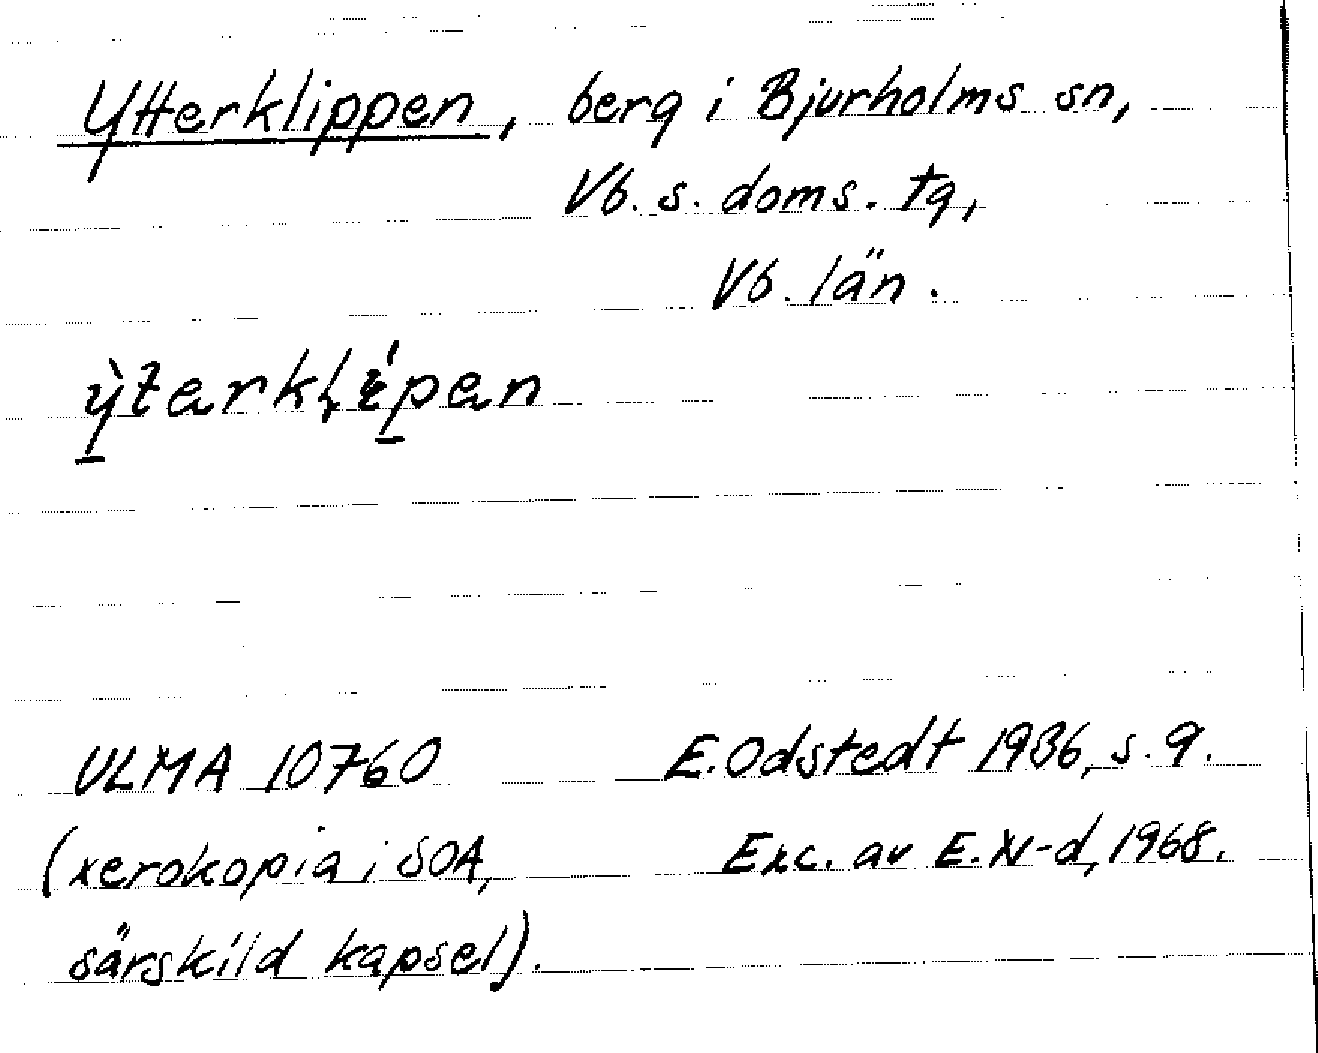 Ytterklippen, berg i Bjurholms sn,
Vb. s. doms. tg,
Vb. län.
ỳterklípen
ULMA 10760 E. Odstedt 1936, s. 9.
(xerokopia i SOA, Exc. av E. N-d, 1968.
särskild kapsel).